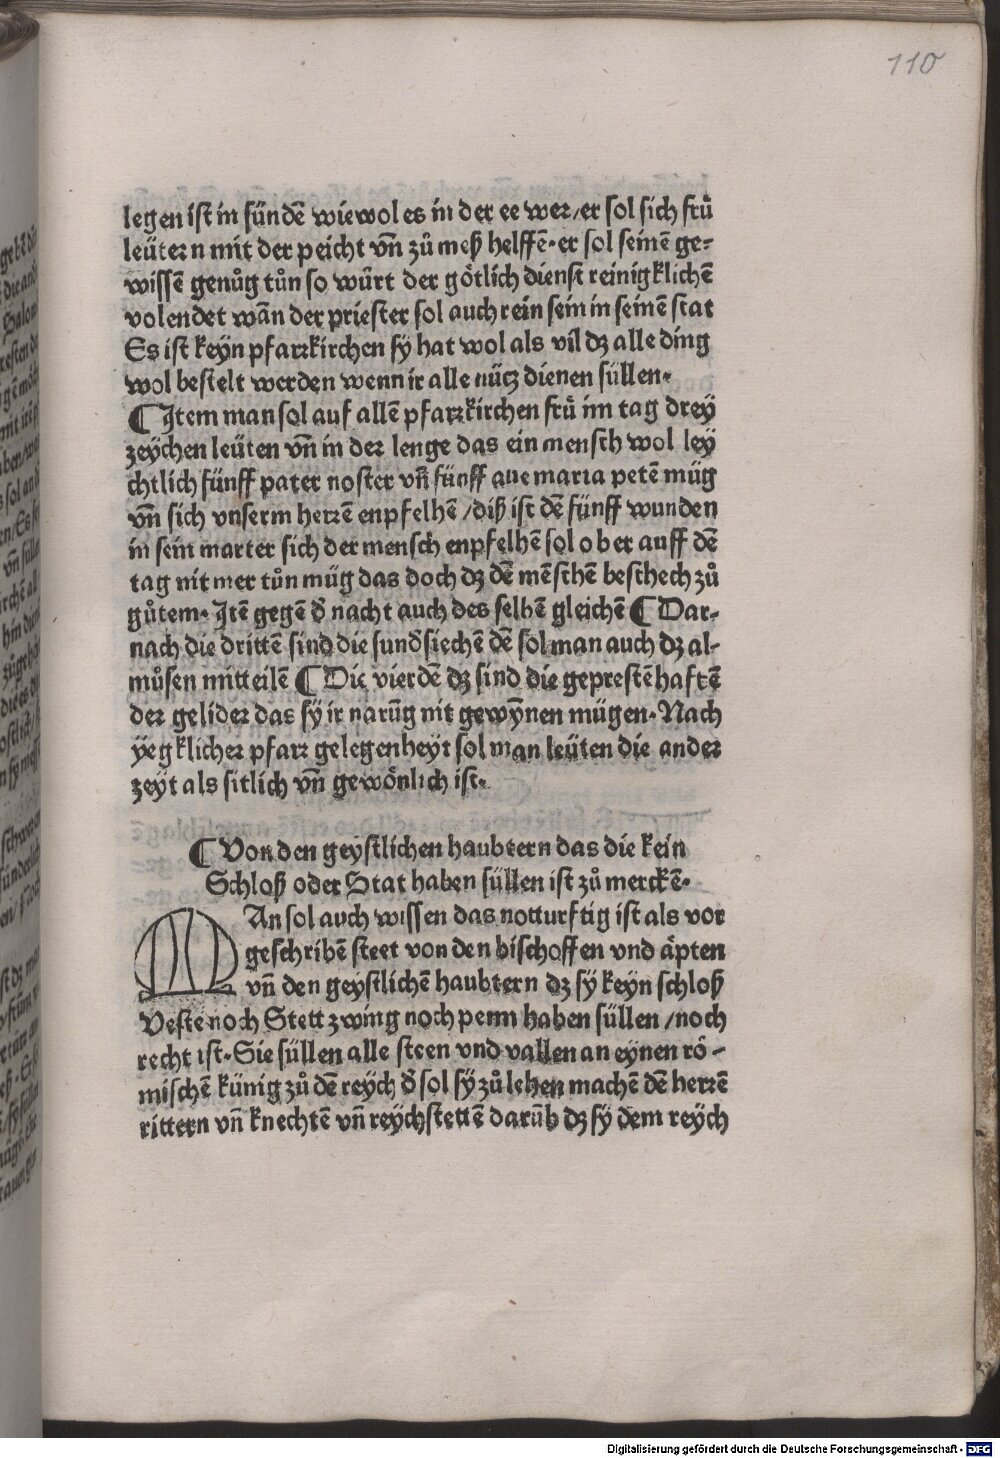 110
legen ist in sündẽ wiewol es in der ee wer/er sol sich frů
leütern mit der peicht vñ zů meß helffẽ·er sol seinẽ ge⸗
wissẽ genůg tůn so würt der götlich dienst reinigklichẽ
volendet wañ der priester sol auch rein sein in seinẽ stat
Es ist keyn pfarrkirchen sÿ hat wol als vil dz alle ding
wol bestelt werden wenn ir alle nütz dienen süllen·
¶ Item man sol auf allẽ pfarrkirchen frů im tag dreÿ
zeÿchen leüten vñ in der lenge das ein mensch wol leÿ
chtlich fünff pater noster vñ fünff aue maria petẽ müg
vñ sich vnserm herrẽ enpfelhẽ/diß ist dẽ fünff wunden
in sein marter sich der mensch enpfelhẽ sol ober auff dẽ
tag nit mer tůn müg das doch dz dẽ mẽschẽ beschech zů
gůtem· Itẽ gegẽ d̕ nacht auch des selbẽ gleichẽ ¶ Dar⸗
nach die drittẽ sind die sund̕siechẽ dẽ sol man auch dz al⸗
můsen mitteilẽ ¶ Die vierdẽ dz sind die geprestẽhaftẽ
der gelider das sÿ ir narũg nit gewÿnen mügen·Nach
ÿegklicher pfarr gelegenheyt sol man leüten die ander
zeÿt als sitlich vñ gewönlich ist·
¶ Von den geystlichen haubtern das die kein
Schloß oder Stat haben süllen ist zů merckẽ·
MAn sol auch wissen das notturftig ist als vor
geschribẽ steet von den bischoffen vnd äpten
vñ den geystlichẽ haubtern dz sÿ keyn schloß
Veste noch Stett zwing noch penn haben süllen/noch
recht ist·Sie süllen alle steen vnd vallen an eÿnen rö⸗
mischẽ künig zů dẽ reÿch d̕ sol sÿ zů lehen machẽ dẽ herrẽ
rittern vñ knechtẽ vñ reÿchstettẽ darũb dz sÿ dem reÿch
Digitalisierung gefördert durch die Deutsche Forschungsgemeinschaft - DFG